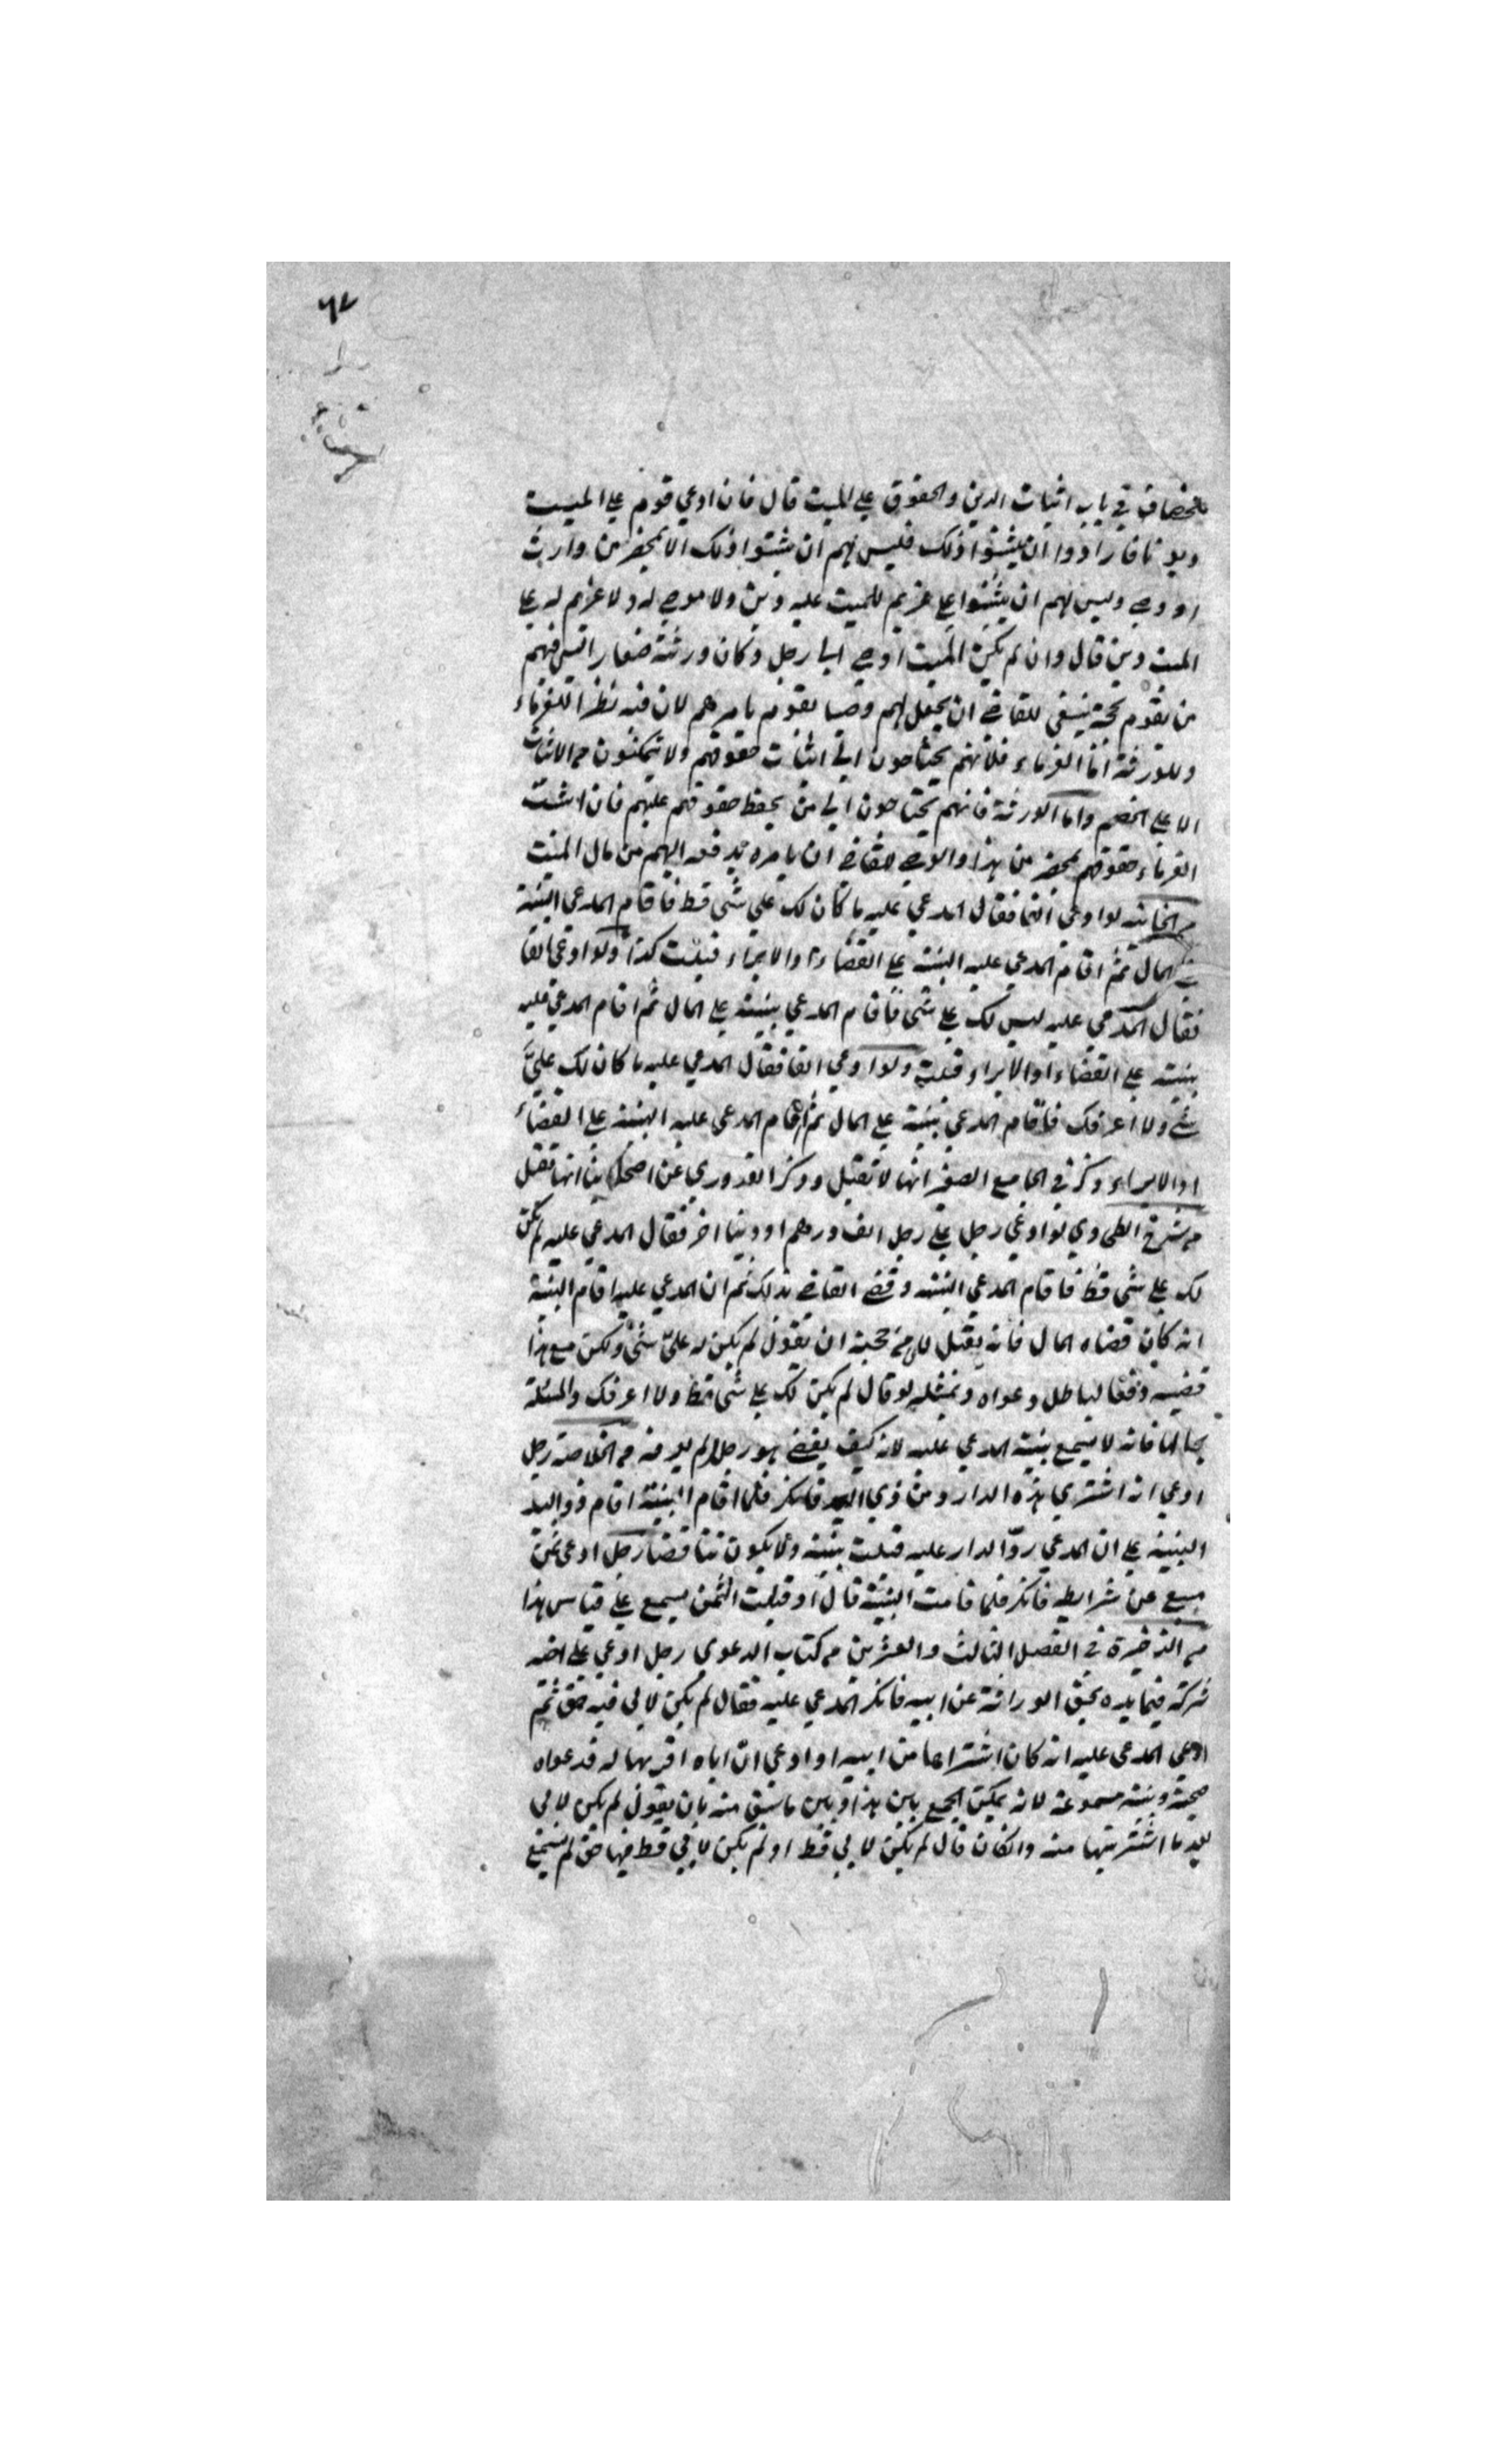 ٦٧
للخصاف في باب اثبات الدين والحقوق على الميت قال فان ادعى قوم على الميت
ديونا فارادوا ان يثبتوا ذلك فليس لهم ان يثبتوا ذلك الا بمحضر من وارث
او وصي وليس لهم ان يثبتوا على غريم للميت عليه دين ولا موصى له ولا غريم له على
الميت دين قال وان لم يكن الميت اوصى الى رجل وكان ورثته صغارا ليس فيهم
من يقوم بحجة ينبغي للقاضي ان يجعل لهم وصيا يقوم بامرهم لان فيه نظرا للغرماء
وللورثة اما الغرماء فلانهم يحتاجون الى اثبات حقوقهم ولا يتمكنون من الاثبات
الا على الخصم واما الورثة فانهم يحتاجون الى من يحفظ حقوقهم عليهم فان اثبت
الغرماء حقوقهم بمحضر من هذا والوصي للقاضي ان يامره بدفعه اليهم من مال الميت
من الخانية لو ادعى الفا فقال المدعى عليه ما كان لك علي شئ قط فاقام المدعي البينة
على المال ثم اقام المدعى عليه البينة على القضاء او الابراء قبلت كذا ولو ادعى الفا
فقال المدعى عليه ليس لك علي شئ فاقام المدعي بينته على المال ثم اقام المدعى عليه
بينته على القضاء او الابراء قبلت ولو ادعى الفا فقال المدعى عليه ما كان لك عليّ
شئ ولا اعرفك فاقام المدعي بينة على المال ثم اقام المدعى عليه البينة على القضاء
او الابراء ذكر في الجامع الصغير انها لا تقبل وذكر القدوري عن اصحابنا انها تقبل
من شرح الطحاوي لو ادعى رجل على رجل الف درهم او دينا اخر فقال المدعى عليه لم يكن
لك علي شئ قط فاقام المدعي البينة وقضى القاضي بذلك ثم ان المدعى عليه اقام البينة
انه كان قضاه المال فانه يقبل لان من حجته ان يقول لم يكن له عليّ شئ ولكن مع هذا
قضيته دفعا لباطل دعواه وبمثله لو قال لم يكن لك علي شئ قط ولا اعرفك والمسئلة
بحالها فانه لا يسمع بينة المدعى عليه لانه كيف يقضي هو رجلا لم يعرفه من الخلاصة رجل
ادعى انه اشترى هذه الدار من ذي اليد فانكر فلما اقام البينة اقام ذو اليد
البينة على ان المدعي ردّ الدار عليه قبلت بينته ولا يكون تناقضا رجل ادعى ثمن
مبيع عن شرايطه فانكر فلما قامت البينة قال اوفيت الثمن يسمع على قياس هذا
من الذخيرة في الفصل الثالث والعشرين من كتاب الدعوى رجل ادعى على اخيه
شركة فيما بيده بحق الوراثة عن ابيه فانكر المدعى عليه فقال لم يكن لابي فيه حق ثم
ادعى المدعى عليه انه كان اشتراها من ابيه او ادعى ان اباه اقر بها له فدعواه
صحيحة وبينته مسموعة لانه يمكن الجمع بين هذا وبين ما سبق منه بان يقول لم يكن لابي
بعد ما اشتريتها منه وان كان قال لم يكن لابي قط او لم يكن لابي قط فيها حق لم يسمع